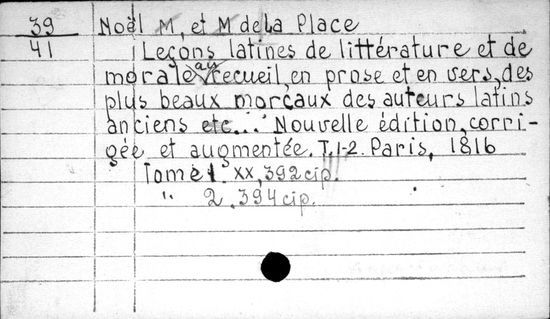 39 Noël M, et M de la Place
41 Leçons latines de littérature et de
morale ou recueil, en prose et en vers, des
plus beaux morçaux des auteurs latins
anciens etc... Nouvelle édition, corri-
gée et augmentée. T. 1-2. Paris, 1816
Tome 1. XX, 392 cip.
" 2. 394 cip.